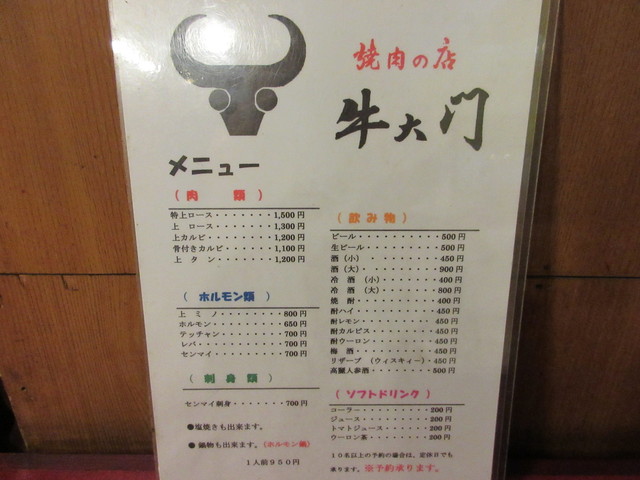 焼肉の店
牛大门
メニュー
(肉類)
特上ロース・・・・・・・1,500円
上 ロース・・・・・・・1,300円
上カルビ・・・・・・・・1,200円
骨付きカルビ・・・・・・1,100円
上 タン・・・・・・・・1,200円
(ホルモン類)
上 ミ ノ・・・・・・・・・800円
ホルモン・・・・・・・・・650円
テッチャン・・・・・・・・700円
レバ・・・・・・・・・・・700円
センマイ・・・・・・・・・700円
(刺身類)
センマイ刺身・・・・・・・700円
●塩焼きも出来ます。
●鍋物も出来ます。(ホルモン鍋)
1人前950円
(飲み物)
ビール・・・・・・・・・・500円
生ビール・・・・・・・・・500円
酒(小)・・・・・・・・・450円
酒(大)・・・・・・・・・900円
冷 酒 (小)・・・・・・400円
冷 酒 (大)・・・・・・800円
焼 酎・・・・・・・・・・400円
酎ハイ・・・・・・・・・・450円
酎レモン・・・・・・・・・450円
酎カルピス・・・・・・・・450円
酎ウーロン・・・・・・・・450円
梅 酒・・・・・・・・・・450円
リザーブ (ウィスキィー)・450円
高麗人参酒・・・・・・・・500円
(ソフトドリンク)
コーラー・・・・・・・・・200円
ジュース・・・・・・・・・200円
トマトジュース・・・・・・200円
ウーロン茶・・・・・・・・200円
10名以上の予約の場合は、定休日でも
承ります。※予約承ります。